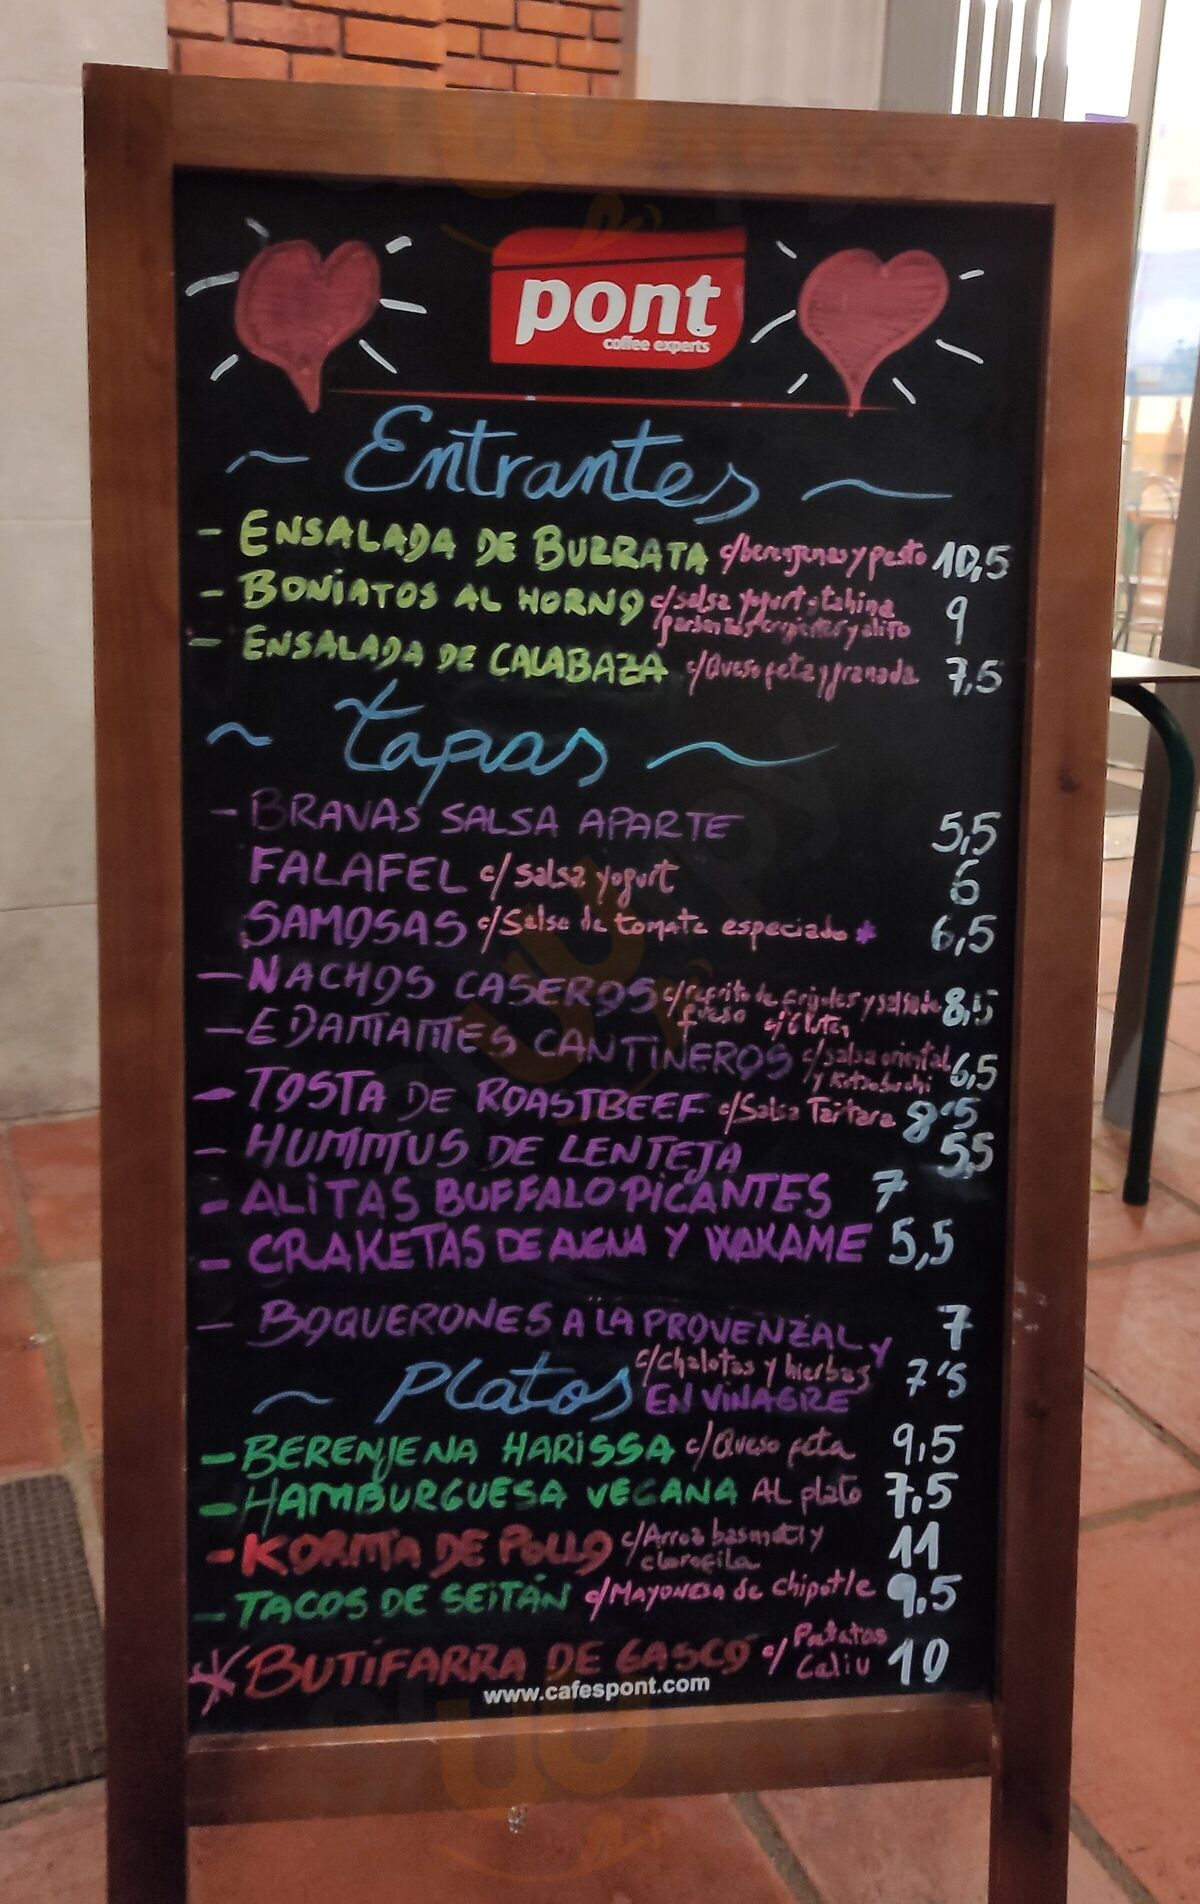 pont
coffee experts
~ Entrantes ~
- ENSALADA DE BURRATA c/berenjenas y pesto 10,5
- BONIATOS AL HORNO c/salsa yogurt y tahina 9
y alito
- ENSALADA DE CALABAZA c/Queso feta y granada 7,5
~ tapas ~
- BRAVAS SALSA APARTE 5,5
FALAFEL c/salsa yogurt 6
SAMOSAS c/Salsa de tomate especiado * 6,5
- NACHOS CASEROS c/refrito de frijoles y salsa de 8,5
queso c/Gluten
- EDAMAMES CANTINEROS c/salsa oriental 6,5
y Katsobuchi
- TOSTA DE ROASTBEEF c/Salsa Tartara 8'5
- HUMMUS DE LENTEJA 5,5
- ALITAS BUFFALO PICANTES 7
- CRAKETAS DE Y WAKAME 5,5
- BOQUERONES A LA PROVENZAL y 7
c/chalotas y hierbas
EN VINAGRE 7'5
~ Platos
- BERENJENA HARISSA c/Queso feta 9,5
- HAMBURGUESA VEGANA AL plato 7,5
- KORMA DE POLLO c/Arroz basmati y 11
clorofila
- TACOS DE SEITÁN c/MAYONESA de chipotle 9,5
* BUTIFARRA DE GASCÓ c/ Patatas Caliu 10
www.cafespont.com